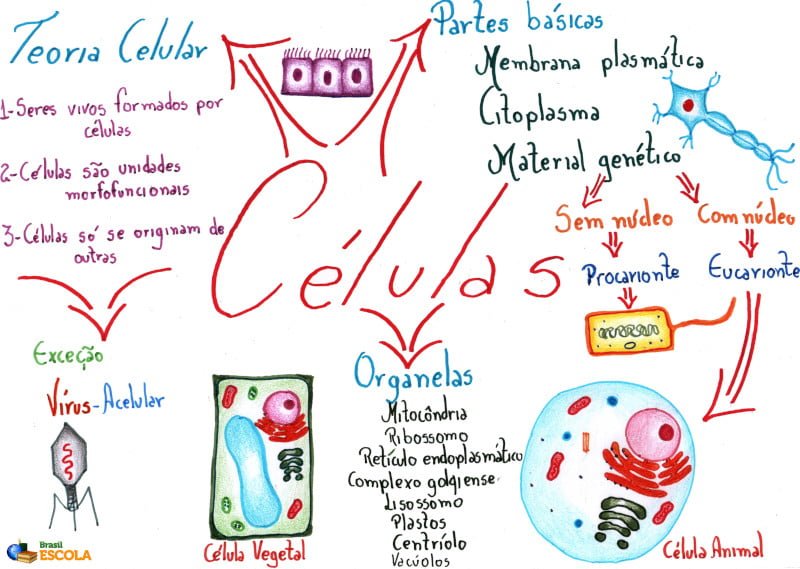 Teoria Celular
1-Seres vivos formados por
células
2-Células são unidades
morfofuncionais
3-Células só se originam de
outras
Exceção
Vírus-Acelular
Células
Partes básicas
Membrana plasmática
Citoplasma
Material genético
Sem núcleo
Com núcleo
Procarionte
Eucarionte
Organelas
Mitocôndria
Ribossomo
Retículo endoplasmático
Complexo golgiense
Lisossomo
Plastos
Centríolo
Vacúolos
Célula Vegetal
Célula Animal
Brasil
ESCOLA